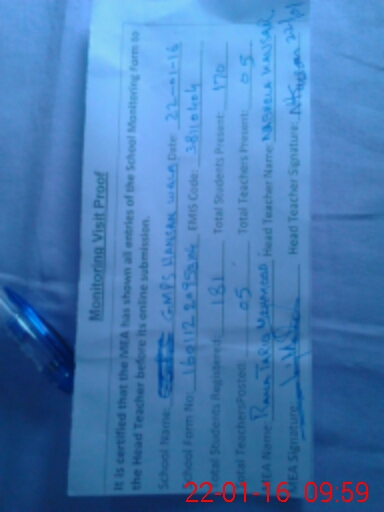 Monitoring Visit Proof
It is certified that the MEA has shown all entries of the School Monitoring form to
the Head Teacher before its online submission.
School Name: GMPS HANJAN WALA Date: 22-01-16
School Form No: EMIS Code: 38110404
Total Students Registered: 181 Total Students Present: 170
Total Teachers Posted: 05 Total Teachers Present: 05
MEA Name: RANA TARIQ MEHMOOD Head Teacher Name: NABEELA KAUSAR
MEA Signature: Head Teacher Signature:
22-01-16 09:59